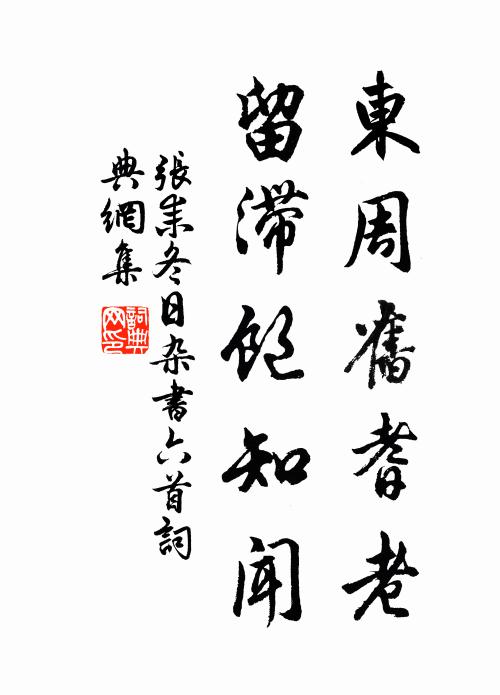 東周舊耆老
留滯飽知聞
張耒冬日杂書六首詞
典網集
詞典
网印